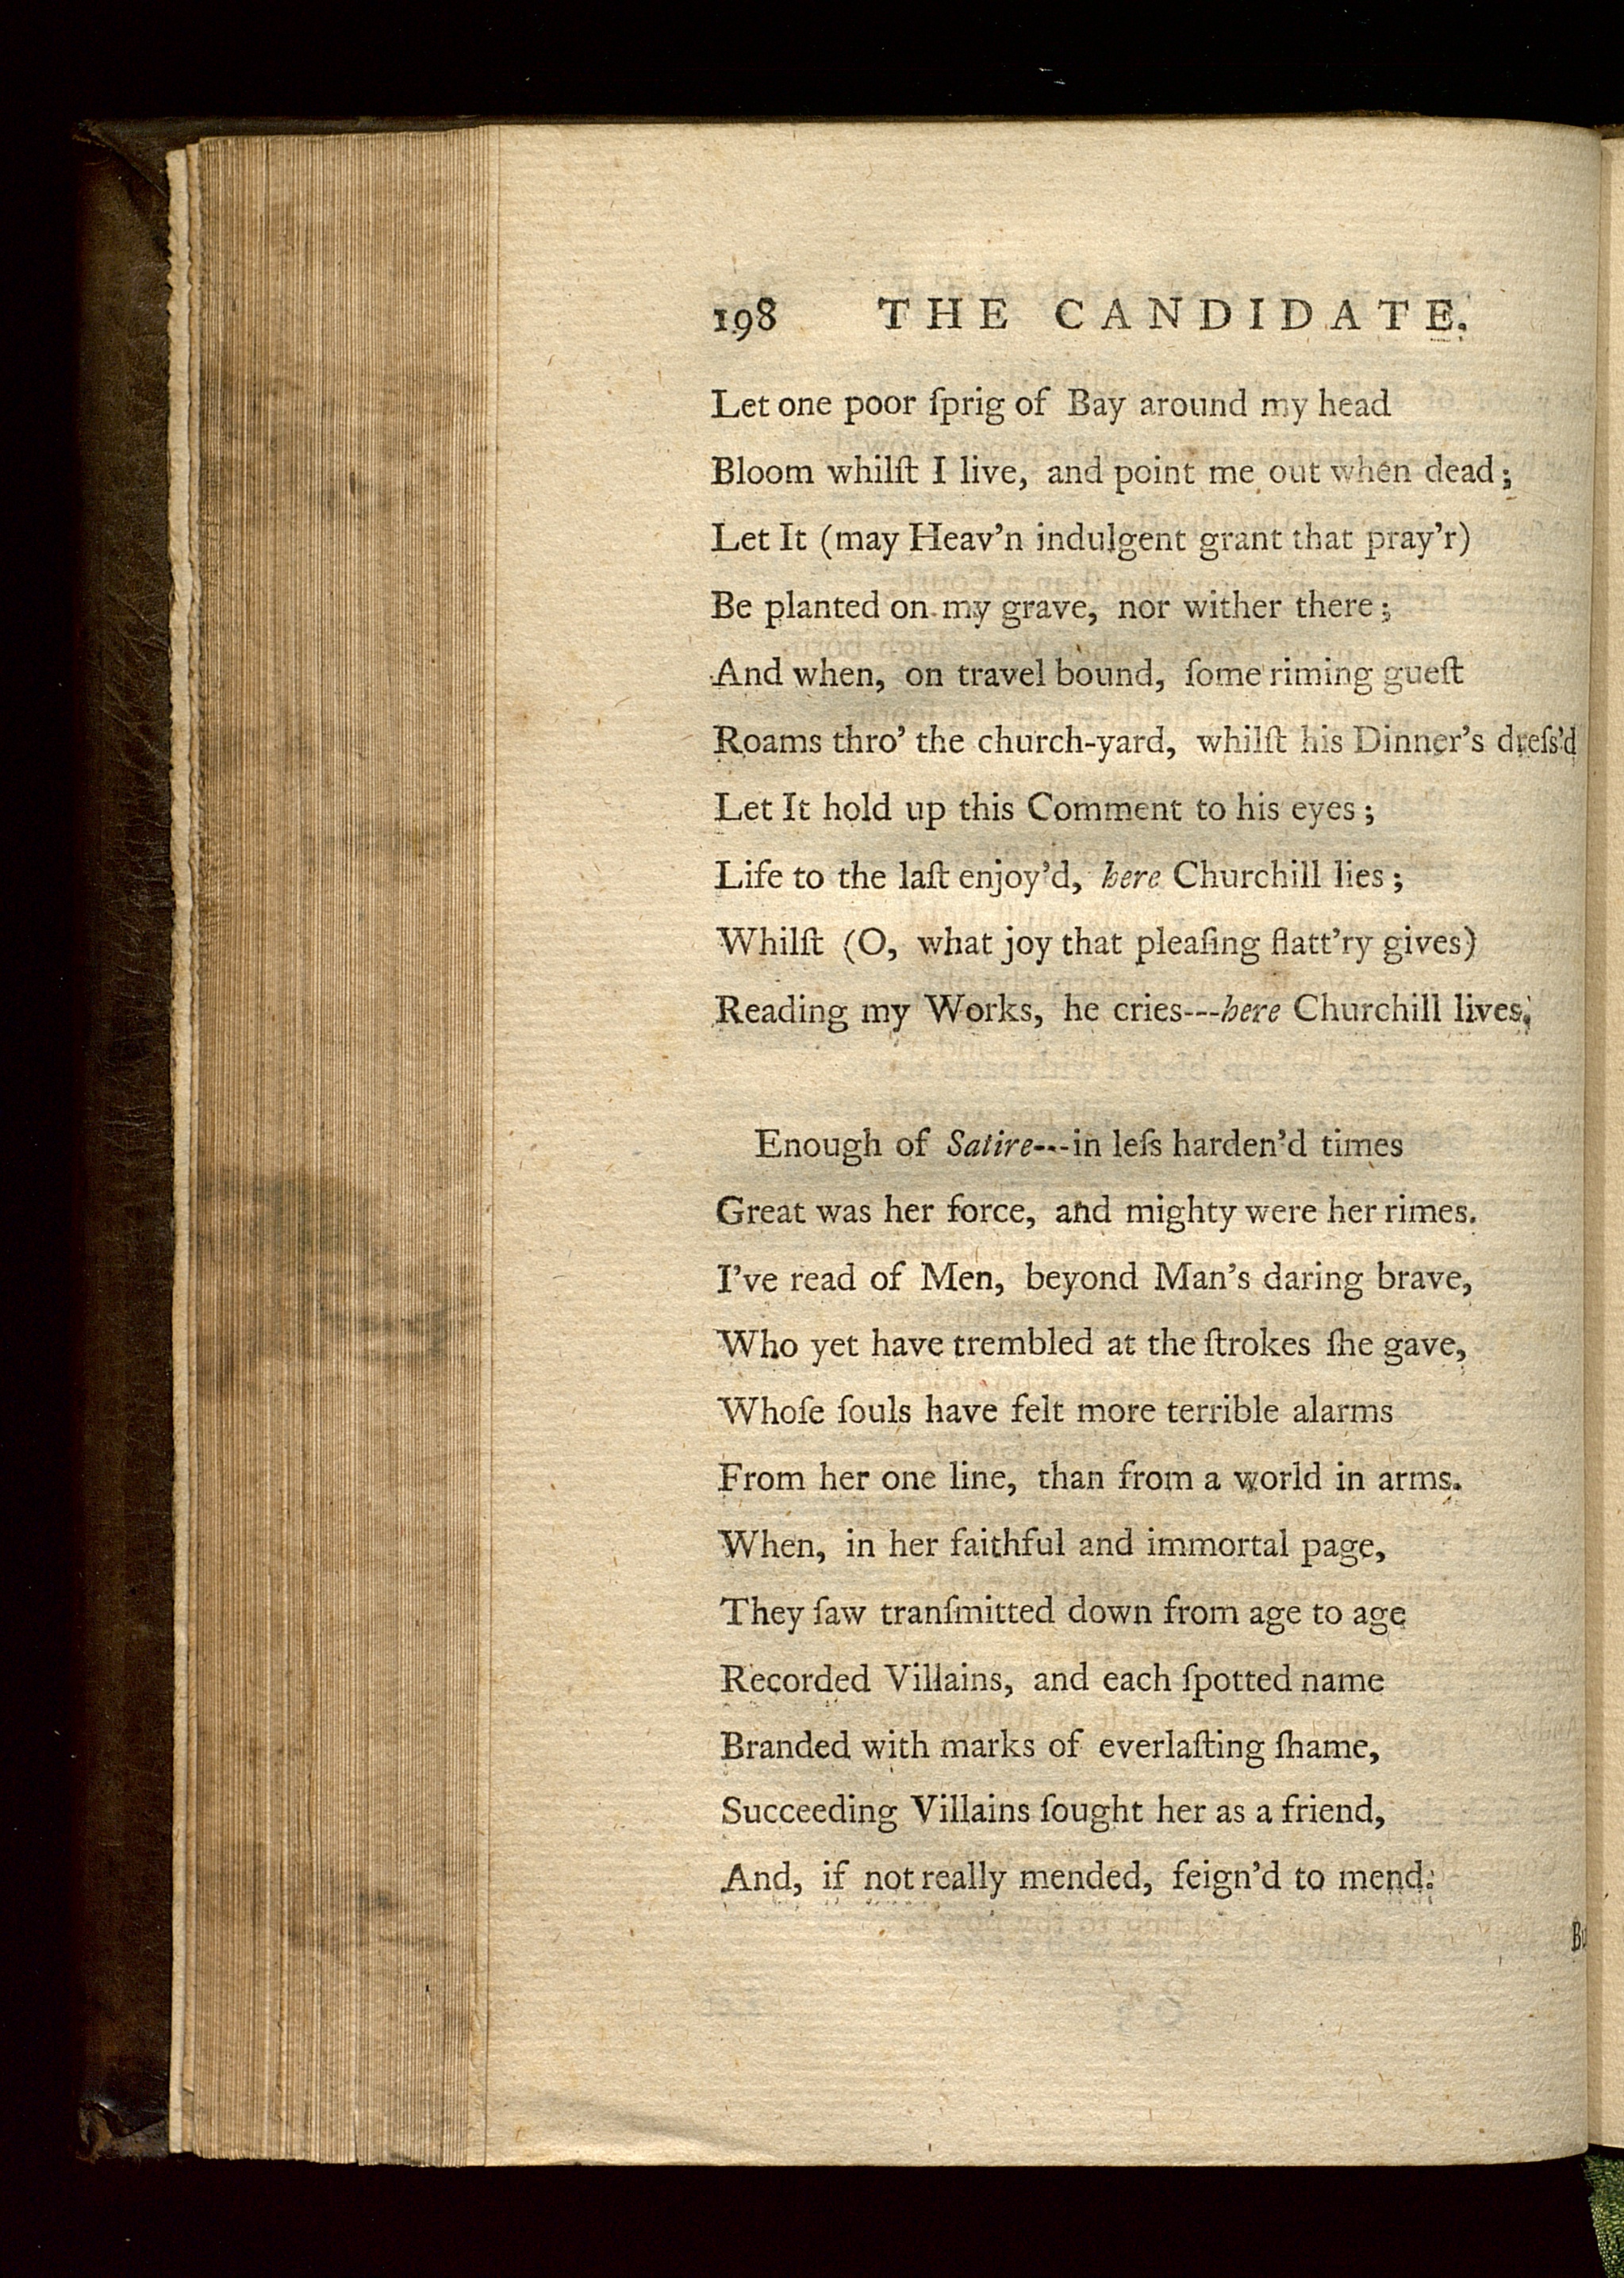 198 THE CANDIDATE.
Let one poor ſprig of Bay around my head
Bloom whilſt I live, and point me out when dead;
Let It (may Heav'n indulgent grant that pray'r)
Be planted on my grave, nor wither there;
And when, on travel bound, ſome riming gueſt
Roams thro' the church-yard, whilſt his Dinner's dreſs'd
Let It hold up this Comment to his eyes;
Life to the laſt enjoy'd, here Churchill lies;
Whilſt (O, what joy that pleaſing flatt'ry gives)
Reading my Works, he cries---here Churchill lives.
Enough of Satire---in leſs harden'd times
Great was her force, and mighty were her rimes.
I've read of Men, beyond Man's daring brave,
Who yet have trembled at the ſtrokes ſhe gave,
Whoſe ſouls have felt more terrible alarms
From her one line, than from a world in arms.
When, in her faithful and immortal page,
They ſaw tranſmitted down from age to age
Recorded Villains, and each ſpotted name
Branded with marks of everlaſting ſhame,
Succeeding Villains ſought her as a friend,
And, if not really mended, feign'd to mend.